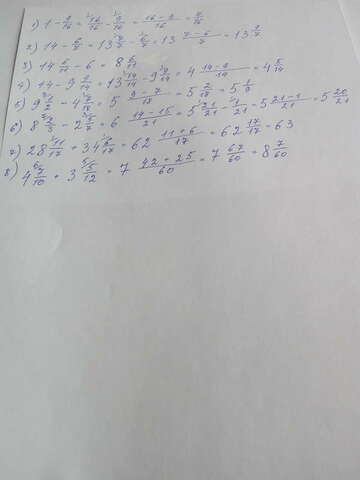 1) 1 - 9/16 = 16/16 - 9/16 = (16-9)/16 = 7/16
2) 14 - 6/7 = 13 7/7 - 6/7 = 13 (7-6)/7 = 13 1/7
3) 14 6/11 - 6 = 8 6/11
4) 14 - 9 9/14 = 13 14/14 - 9 9/14 = 4 (14-9)/14 = 4 5/14
5) 9 1/2 - 4 7/18 = 5 (9-7)/18 = 5 2/18 = 5 1/9
6) 8 2/3 - 2 5/7 = 6 (14-15)/21 = 5 21/21 - 1/21 = 5 (21-1)/21 = 5 20/21
7) 28 11/17 + 34 6/17 = 62 (11+6)/17 = 62 17/17 = 63
8) 4 7/10 + 3 5/12 = 7 (42+25)/60 = 7 67/60 = 8 7/60